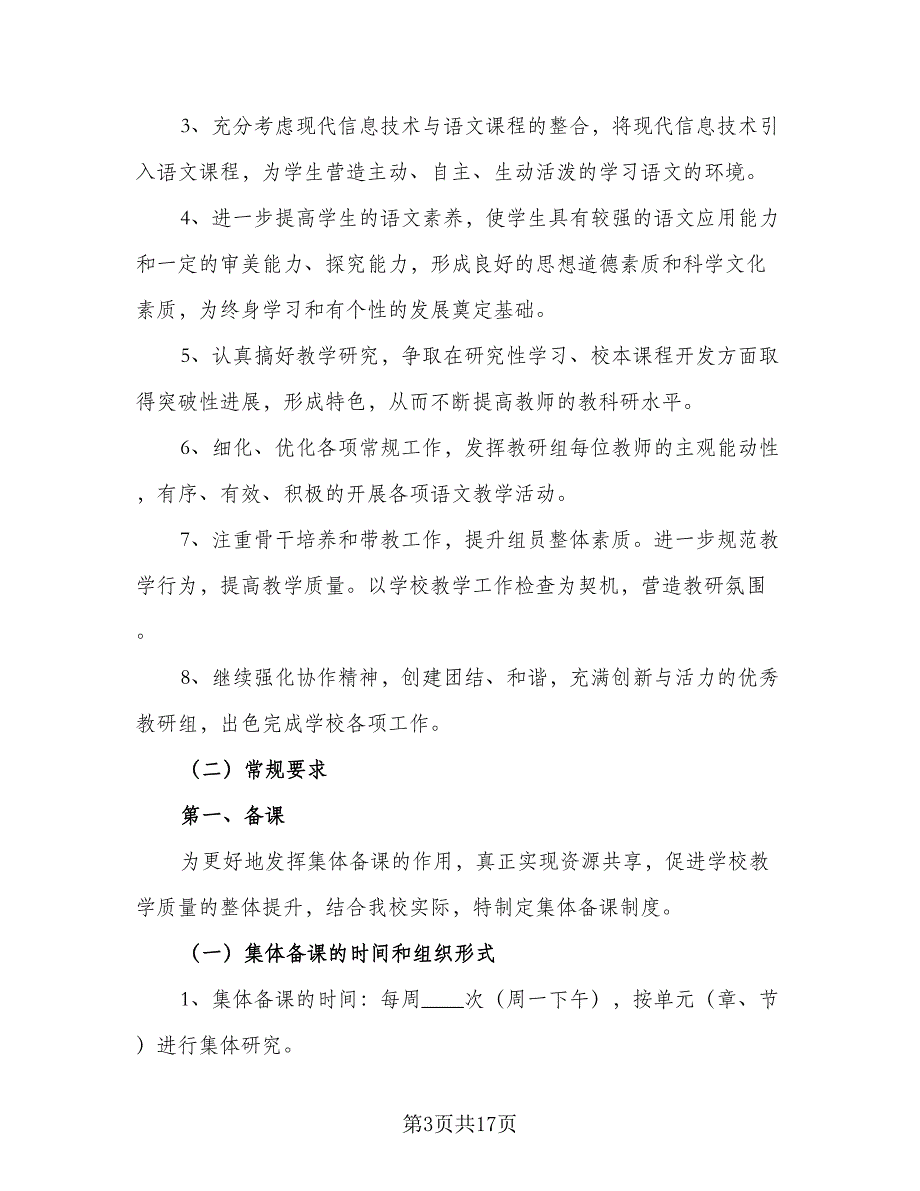 3、充分考虑现代信息技术与语文课程的整合，将现代信息技术引
入语文课程，为学生营造主动、自主、生动活泼的学习语文的环境。
4、进一步提高学生的语文素养，使学生具有较强的语文应用能力
和一定的审美能力、探究能力，形成良好的思想道德素质和科学文化
素质，为终身学习和有个性的发展奠定基础。
5、认真搞好教学研究，争取在研究性学习、校本课程开发方面取
得突破性进展，形成特色，从而不断提高教师的教科研水平。
6、细化、优化各项常规工作，发挥教研组每位教师的主观能动性
，有序、有效、积极的开展各项语文教学活动。
7、注重骨干培养和带教工作，提升组员整体素质。进一步规范教
学行为，提高教学质量。以学校教学工作检查为契机，营造教研氛围
。
8、继续强化协作精神，创建团结、和谐，充满创新与活力的优秀
教研组，出色完成学校各项工作。
（二）常规要求
第一、备课
为更好地发挥集体备课的作用，真正实现资源共享，促进学校教
学质量的整体提升，结合我校实际，特制定集体备课制度。
（一）集体备课的时间和组织形式
1、集体备课的时间：每周____次（周一下午），按单元（章、节
）进行集体研究。
第3页共17页